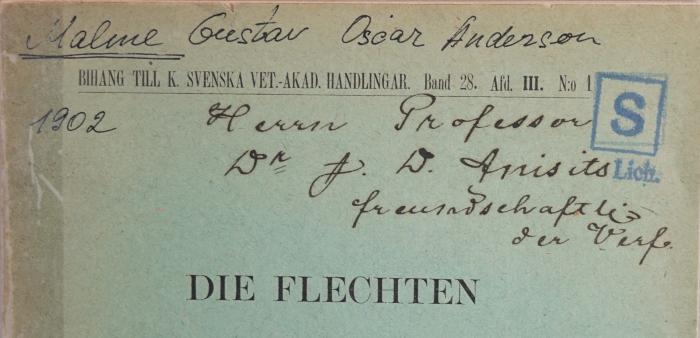 Malme Gustav Oscar Anderson
BIHANG TILL K. SVENSKA VET.-AKAD. HANDLINGAR. Band 28. Afd. III. N:o 1
1902
Herrn Professor
S
Dr J. D. Anisits
Lich.
freundschaftl.
der Verf.
DIE FLECHTEN